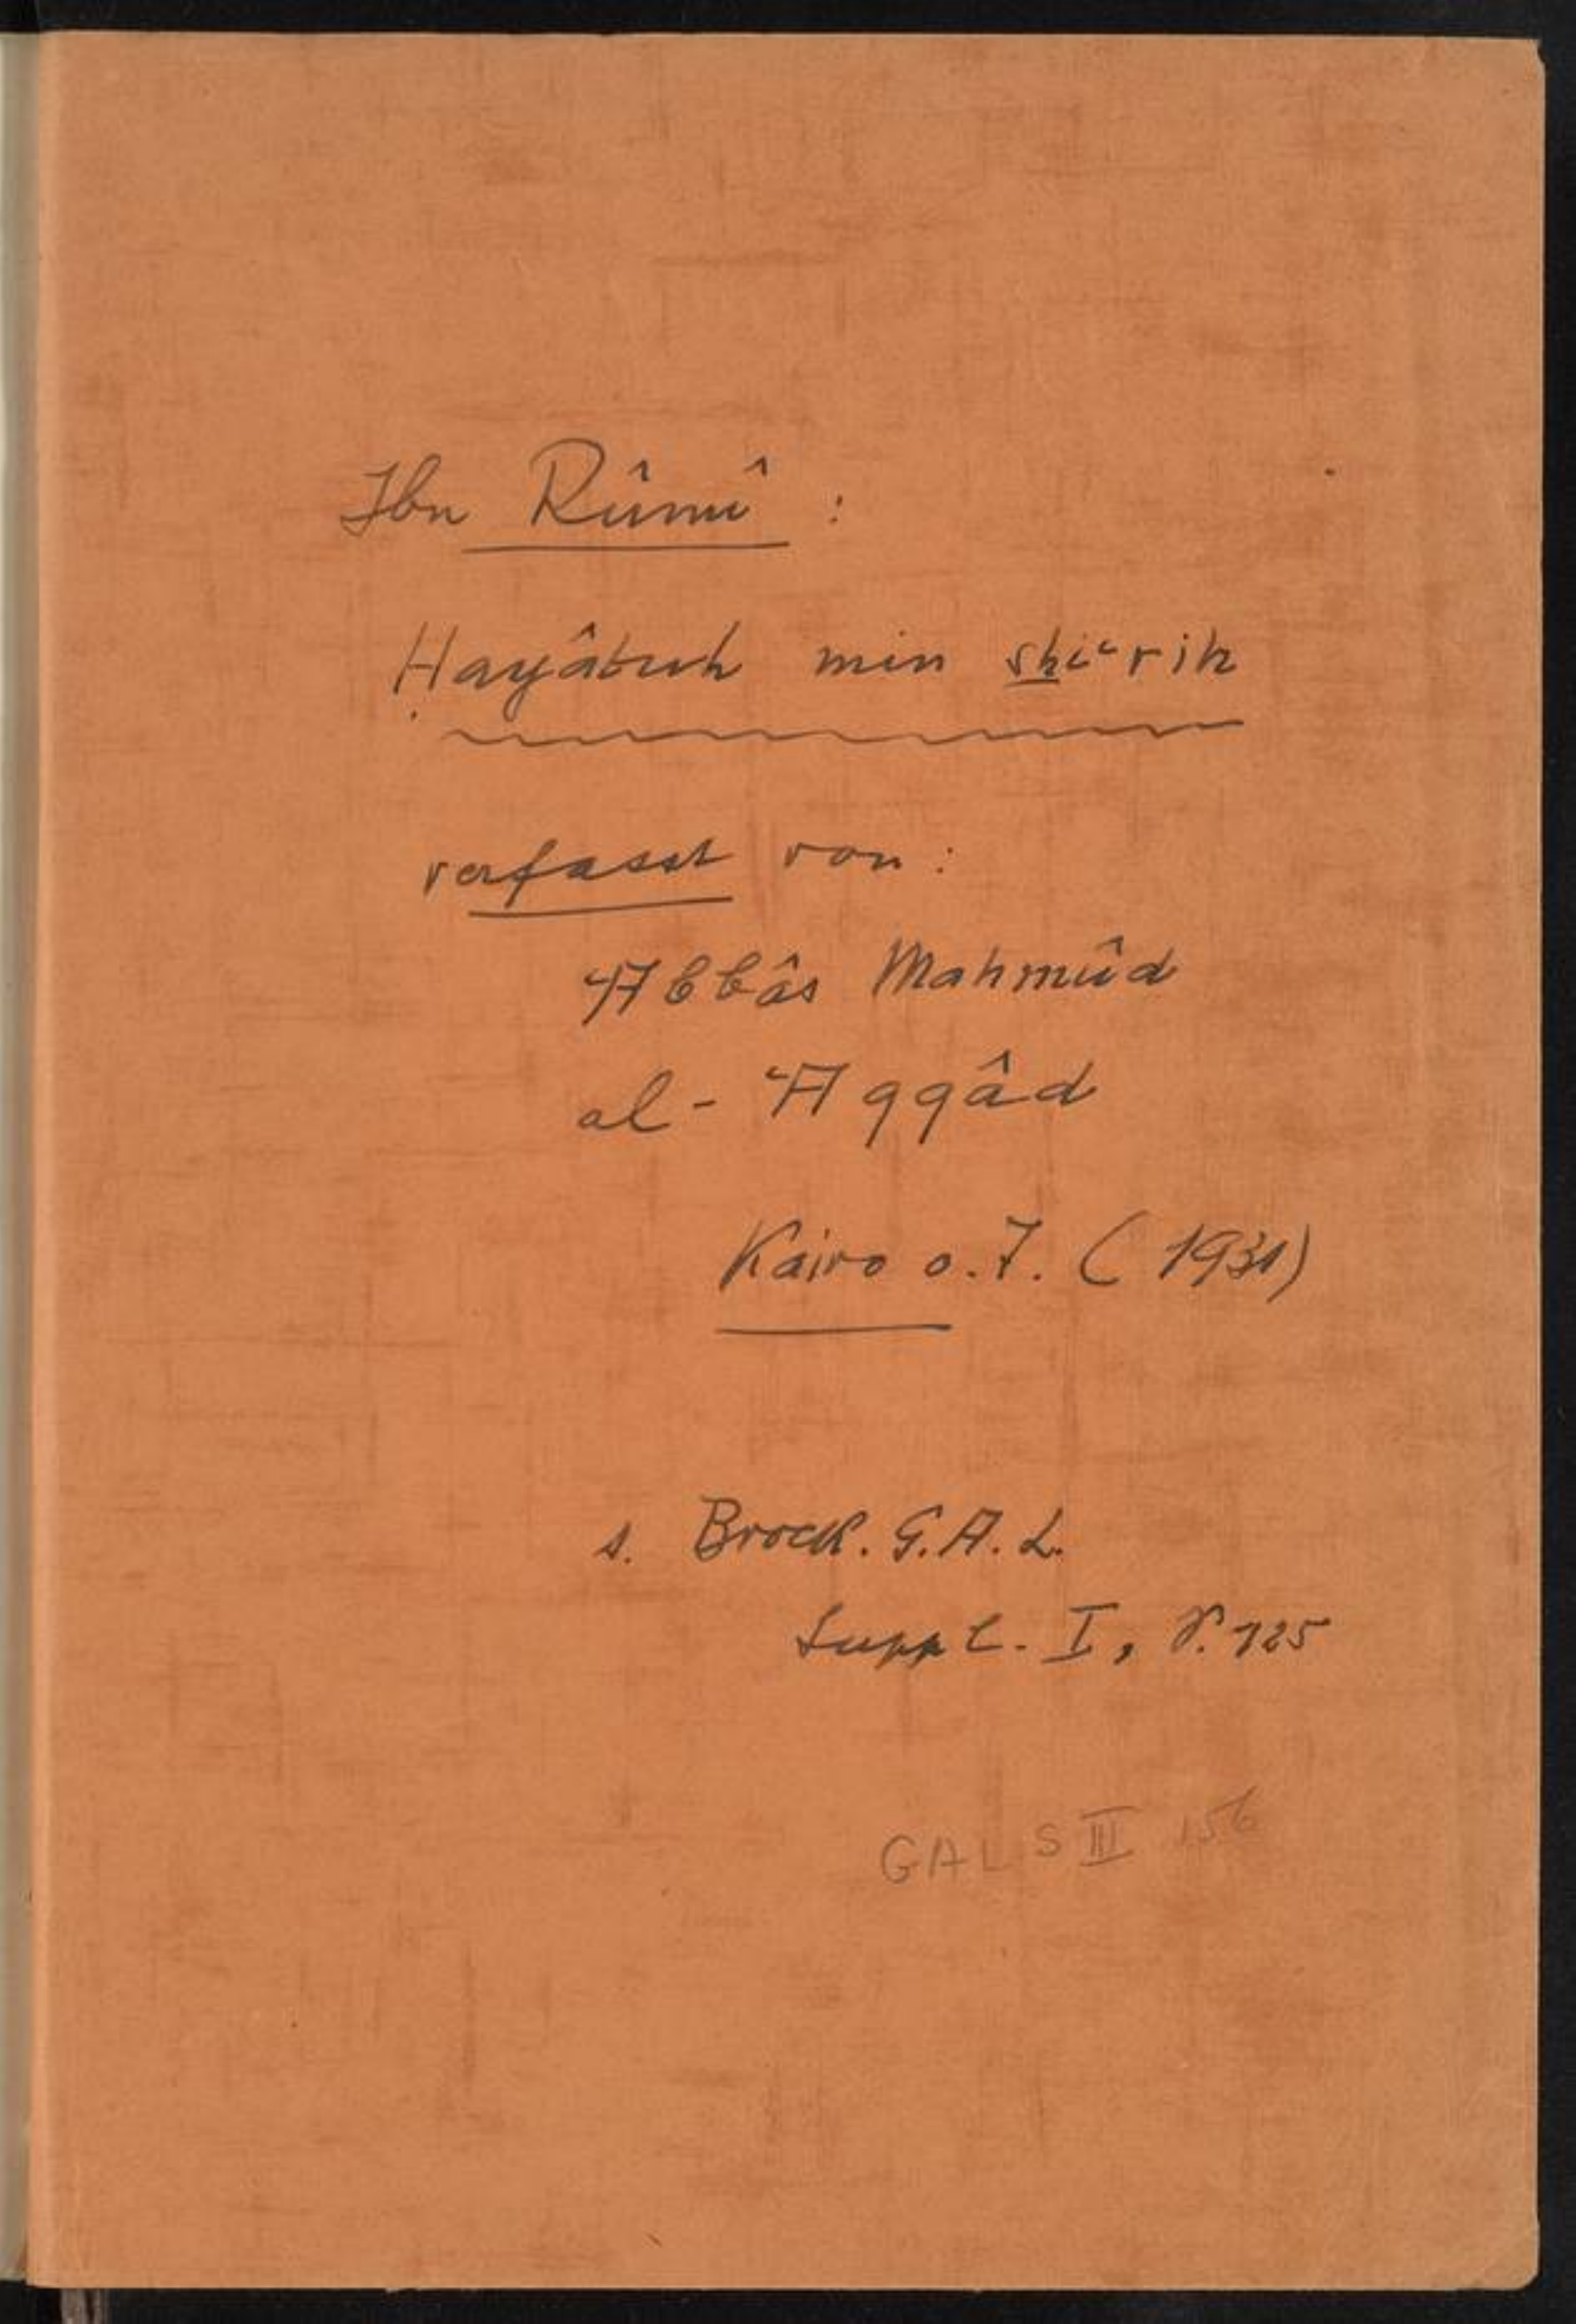 Ibn Rûmî :
Ḥayâtuh min shiʿrih
verfasst von :
ʿAbbâs Mahmûd
al-ʿAqqâd
Kairo o.J. (1931)
s. Brock. G.A.L.
Suppl. I, S. 125
GAL S III 156